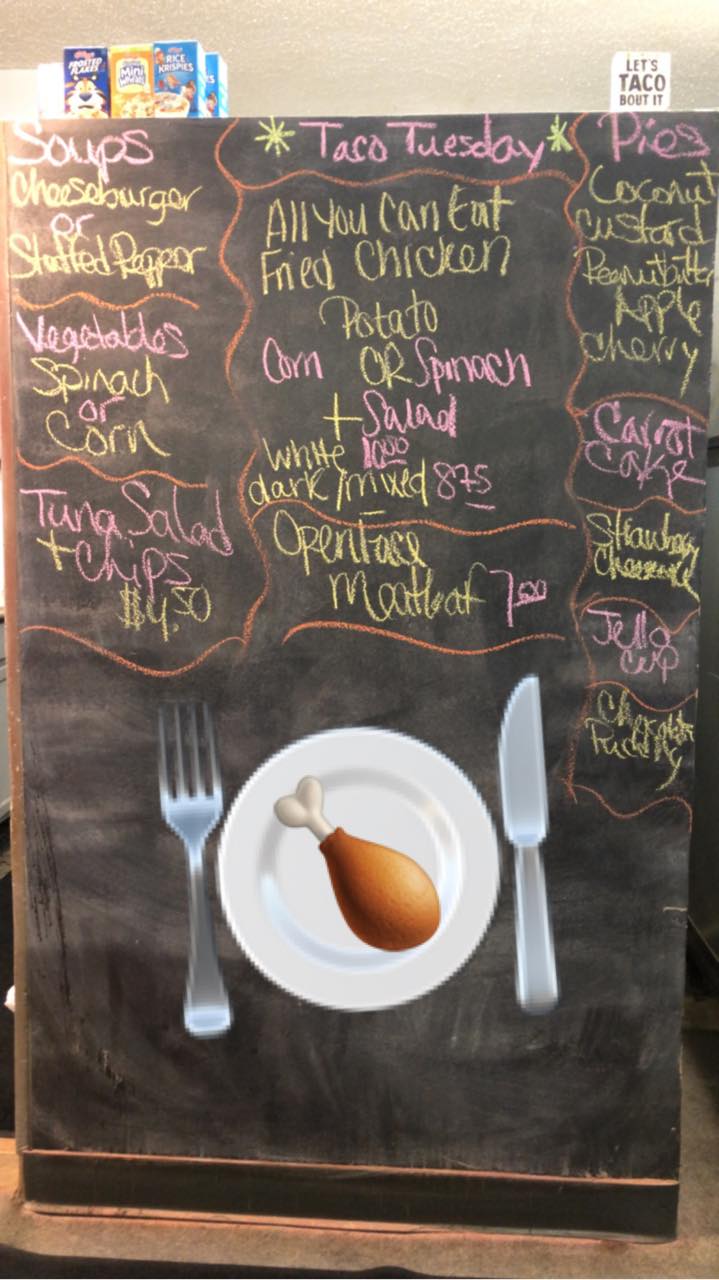 Kellogg's
FROSTED
FLAKES
Mini
WHEATS
RICE
KRISPIES
LET'S
TACO
BOUT IT
Soups
Cheeseburger
or
Stuffed Pepper
Vegetables
Spinach
or
Corn
Tuna Salad
+ Chips
$4.50
* Taco Tuesday *
All You Can Eat
Fried Chicken
Potato
Corn OR Spinach
+ Salad
White 10.00
dark/mixed 8.75
Openface
Meatloaf 7.00
Pies
Coconut
Custard
Peanutbutter
Apple
Cherry
Carrot
Cake
Strawberry
Cheesecake
Jello
Cup
Chocolate
Pudding